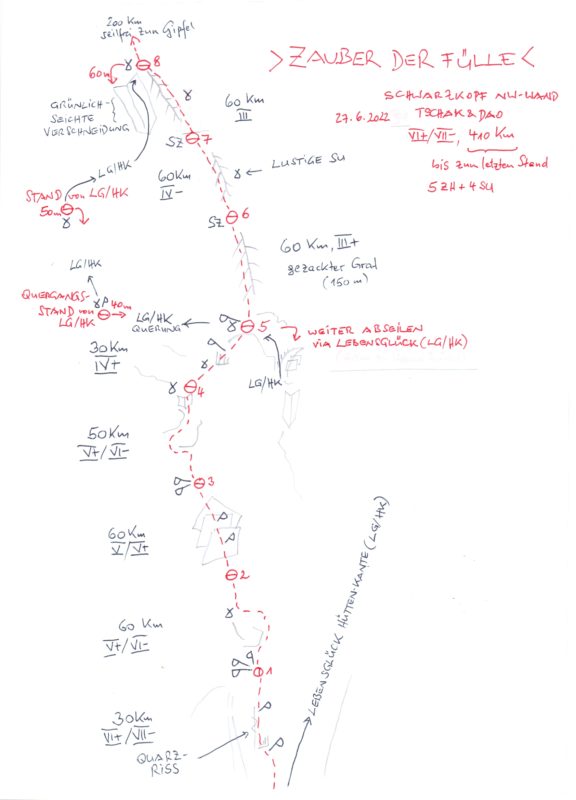 200 Km
seilfrei zum Gipfel
>ZAUBER DER FÜLLE<
8
60m
60 Km
III
SCHWARZKOPF NW-WAND
27.6.2022
TSCHAK & DAO
VI+/VII-, 410 Km
bis zum letzten Stand
5 ZH + 4 SU
GRÜNLICH-
SEICHTE
VERSCHNEIDUNG
SZ
7
LG/HK
60 Km
IV-
LUSTIGE SU
STAND von LG/HK
50m
SZ
6
LG/HK
60 Km, III+
gezackter Grat
(150 m)
QUERGANGS-
STAND von
LG/HK
40m
LG/HK
QUERUNG
5
WEITER ABSEILEN
VIA LEBENSGLÜCK (LG/HK)
30 Km
IV+
4
LG/HK
50 Km
V+/VI-
3
60 Km
V/V+
2
60 Km
V+/VI-
1
LEBENSGLÜCK HÜTTEN-KANTE (LG/HK)
30 Km
VI+/VII-
QUARZ-
RISS